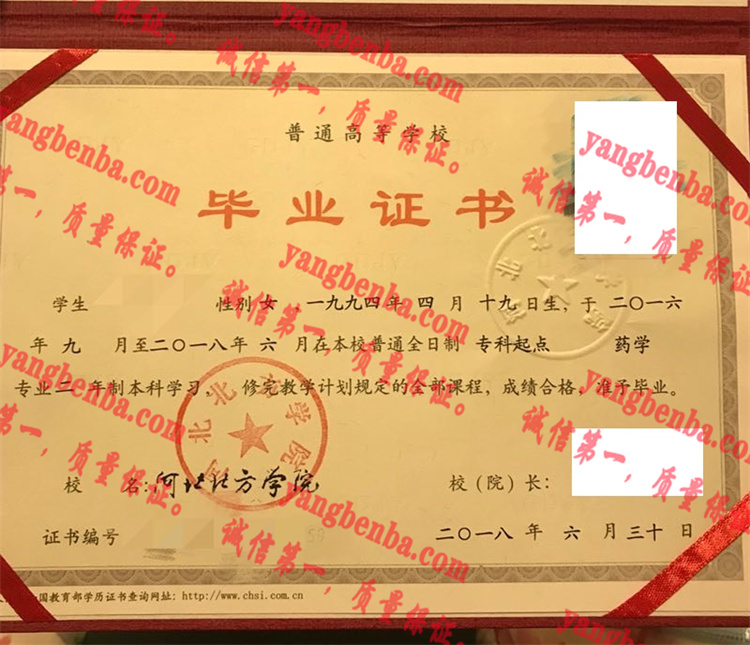 普通高等学校
毕业证书
学生 性别 女 ，一九九四年 四 月 十九日生，于 二〇一六
年 九 月至二〇一八年 六 月在本校普通全日制 专科起点 药学
专业 二 年制本科学习， 修完教学计划规定的全部课程，成绩合格，准予毕业。
校 名：河北北方学院 校（院）长：
证书编号 59 二〇一八 年 六 月 三十 日
国教育部学历证书查询网址：http://www.chsi.com.cn
yangbenba.com
诚信第一，质量保证。